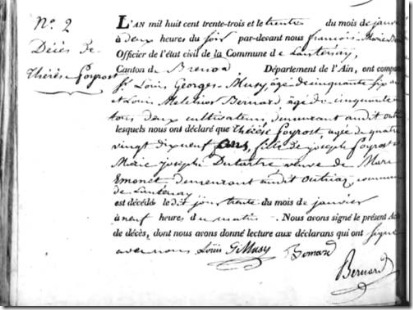 N.° 2
Décès de
Thérèse Poyrost
L'AN mil huit cent trente-trois et le trente du mois de janvier
à deux heures du soir par-devant nous françois
Officier de l'état civil de la Commune de Lantenay,
Canton de Brenod Département de l'Ain, ont comparu
Sr Louis Georges Musy, âgé de cinquante six ans
et Louis Melchior Bernard, âgé de cinquante
tous deux cultivateurs, demeurant audit outriaz
lesquels nous ont déclaré que thérèse poyrost, âgé de quatre
vingt dix neuf ans, fille de joseph poyrost et
Marie joseph Dutartre veuve de Marc
Emonet demeurant audit outriaz, commune
de Lantenay
est décédée le dit jour trente du mois de janvier
à neuf heures du matin. Nous avons signé le présent Acte
de décès, dont nous avons donné lecture aux déclarans qui ont signé
avec nous Louis G Musy
Bernard